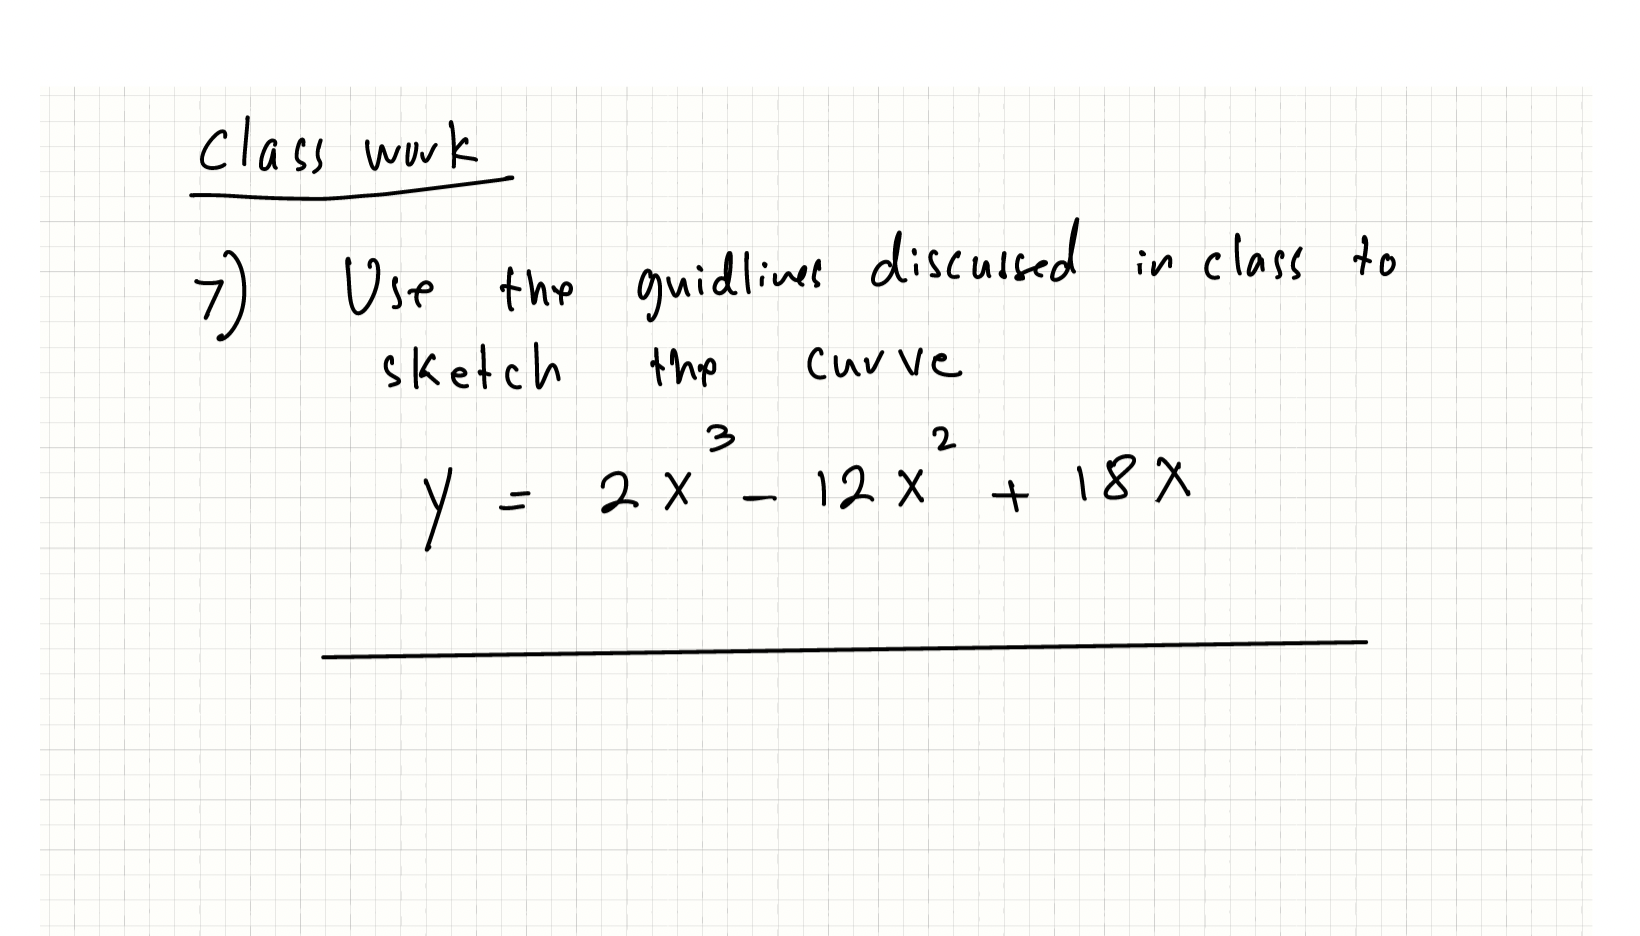 Class work
7) Use the guidlines discussed in class to
sketch the curve
y = 2x³ - 12x² + 18x